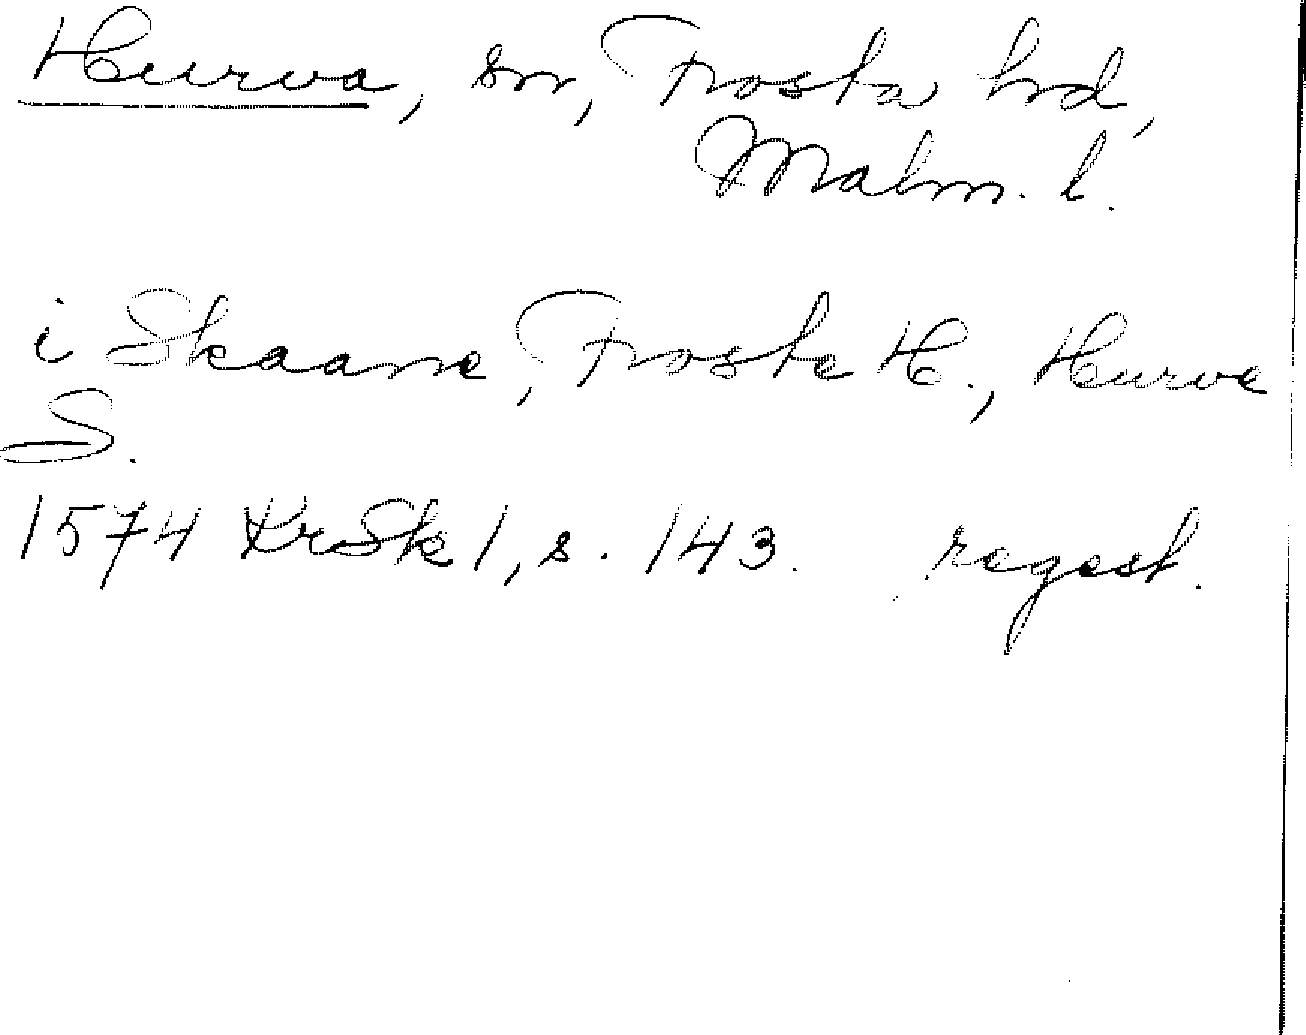 Hurva, sn, Frosta hrd,
Malm. l.
i Skaane, Froste H., Hurve
S.
1574 KrSk 1, s. 143. regest.